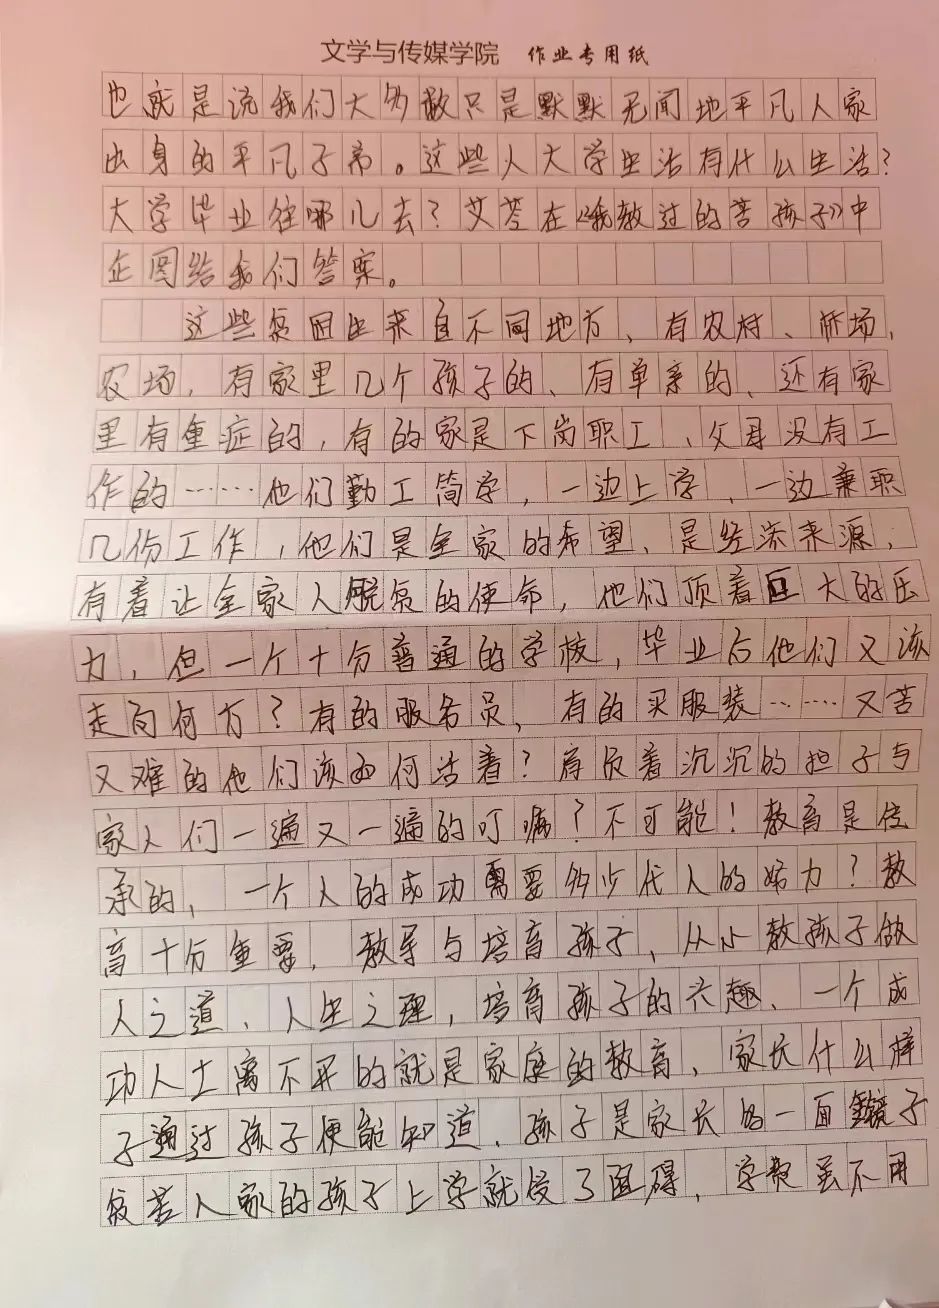 文学与传媒学院 作业专用纸
也就是说我们大多数只是默默无闻地平凡人家
出身的平凡子弟。这些人大学生活有什么生活?
大学毕业往哪儿去?艾苓在《我教过的苦孩子》中
企图给我们答案。
这些贫困生来自不同地方、有农村、林场,
农场,有家里几个孩子的、有单亲的、还有家
里有重症的,有的家是下岗职工、父母没有工
作的……他们勤工简学,一边上学,一边兼职
几份工作,他们是全家的希望、是经济来源,
有着让全家人脱贫的使命,他们顶着巨大的压
力,但一个十分普通的学校,毕业后他们又该
走向何方?有的服务员,有的买服装……又苦
又难的他们该如何活着?肩负着沉沉的担子与
家人们一遍又一遍的叮嘱?不可能!教育是传
承的,一个人的成功需要多少代人的努力?教
育十分重要,教导与培育孩子,从小教孩子做
人之道、人生之理,培育孩子的兴趣、一个成
功人士离不开的就是家庭的教育,家长什么样
子通过孩子便能知道、孩子是家长的一面镜子
贫苦人家的孩子上学就受了阻碍,学费虽不用